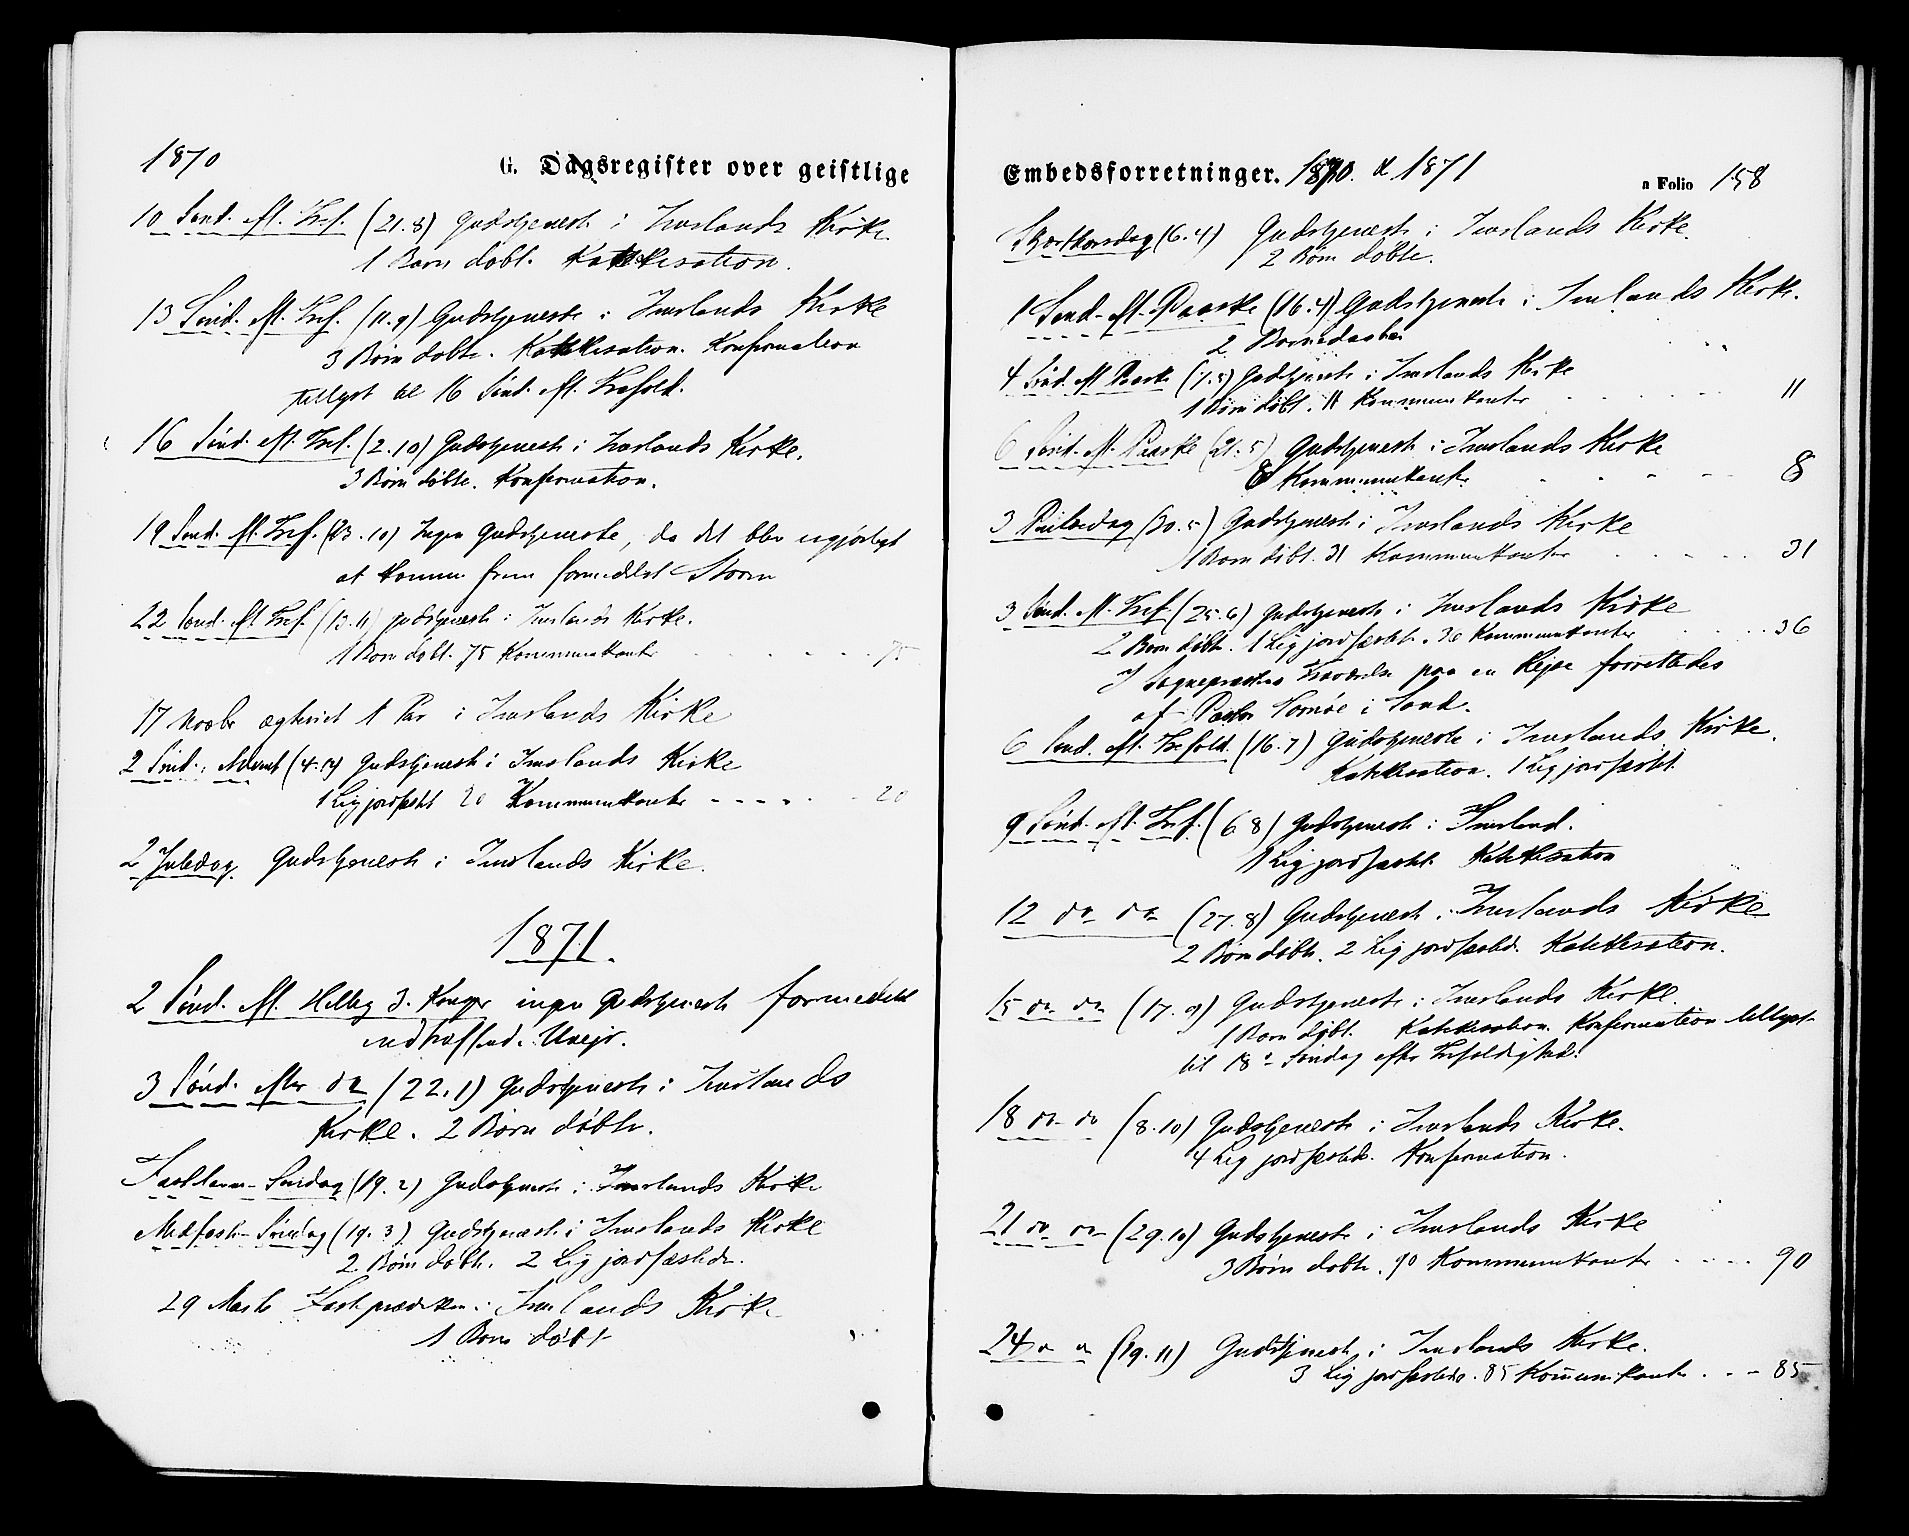 1870
G. Dagsregister over geistlige
10 Sønd. eft. Tref. (21.8) Gudstjeneste i Imslands Kirke
1 Barn døbt. Katekisation.
13 Sønd. eft. Tref. (11.9) Gudstjeneste i Imslands Kirke
3 Børn døbte. Katekisation. Konfirmation
tillyst til 16 Sønd. eft. Trefold.
16 Sønd. eft. Tref. (2.10) Gudstjeneste i Imslands Kirke.
3 Børn døbte. Konfirmation.
19 Sønd. eft. Tref. (23.10) Ingen Gudstjeneste, da det blev ugjørligt
at komme frem formedelst Storm
22 Sønd. eft. Tref. (13.11) Gudstjeneste i Imslands Kirke.
1 Barn døbt. 75 Kommunikanter 75
17 Novbr ægteviet 1 Par i Imslands Kirke
2 Sønd. i Advent (4.12) Gudstjeneste i Imslands Kirke
1 Lig jordfæstet 20 Kommunikanter 20
2 Juledag Gudstjeneste i Imslands Kirke.
1871.
2 Sønd. eft. Hellig 3. Konger ingen Gudstjeneste formedelst
indtræffende Uvejr.
3 Sønd. efter do (22.1) Gudstjeneste i Imslands
Kirke. 2 Børn døbte.
Fastelavns-Søndag (19.2) Gudstjeneste i Imslands Kirke
Midfaste-Søndag (19.3) Gudstjeneste i Imslands Kirke
2 Børn døbte. 2 Lig jordfæstede.
29 Marts Fasteprædiken i Imslands Kirke
1 Barn døbt
Embedsforretninger. 1870. & 1871
a Folio 158
Skærthorsdag (6.4) Gudstjeneste i Imslands Kirke.
2 Børn døbte.
1 Sønd. eft. Paaske (16.4) Gudstjeneste i Imslands Kirke.
2
4 Sønd. eft. Paaske (7.5) Gudstjeneste i Imslands Kirke
1 Barn døbt. 11 Kommunikanter 11
6 Sønd. eft. Paaske (21.5) Gudstjeneste i Imslands Kirke
8 Kommunikanter 8
3 Pintsedag (30.5) Gudstjeneste i Imslands Kirke
1 Barn døbt. 31 Kommunikanter 31
3 Sønd. eft. Tref. (25.6) Gudstjeneste i Imslands Kirke
2 Børn døbte. 1 Lig jordfæstet. 36 Kommunikanter 36
I Sognepræstens Fraværelse paa en Rejse forrettedes
af Pastor i Sand.
6 Sønd. eft. Trefold. (16.7) Gudstjeneste i Imslands Kirke.
Katekisation. 1 Lig jordfæstet
9 Sønd. eft. Tref. (6.8) Gudstjeneste i Imsland.
1 Lig jordfæstet. Katekisation
12 do do (27.8) Gudstjeneste i Imslands Kirke
2 Børn døbte. 2 Lig jordfæstede. Katekisation.
15 do do (17.9) Gudstjeneste i Imslands Kirke.
1 Barn døbt. Katekisation. Konfirmation tillyst
til 18e Søndag efter Trefoldighed.
18 do do (8.10) Gudstjeneste i Imslands Kirke.
4 Lig jordfæstede. Konfirmation.
21 do do (29.10) Gudstjeneste i Imslands Kirke
3 Børn døbte. 90 Kommunikanter 90
24 do do (19.11) Gudstjeneste i Imslands Kirke.
3 Lig jordfæstede. 85 Kommunikanter 85